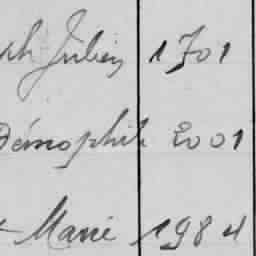 Julien 1701
Démophile 2001
Marie 1984